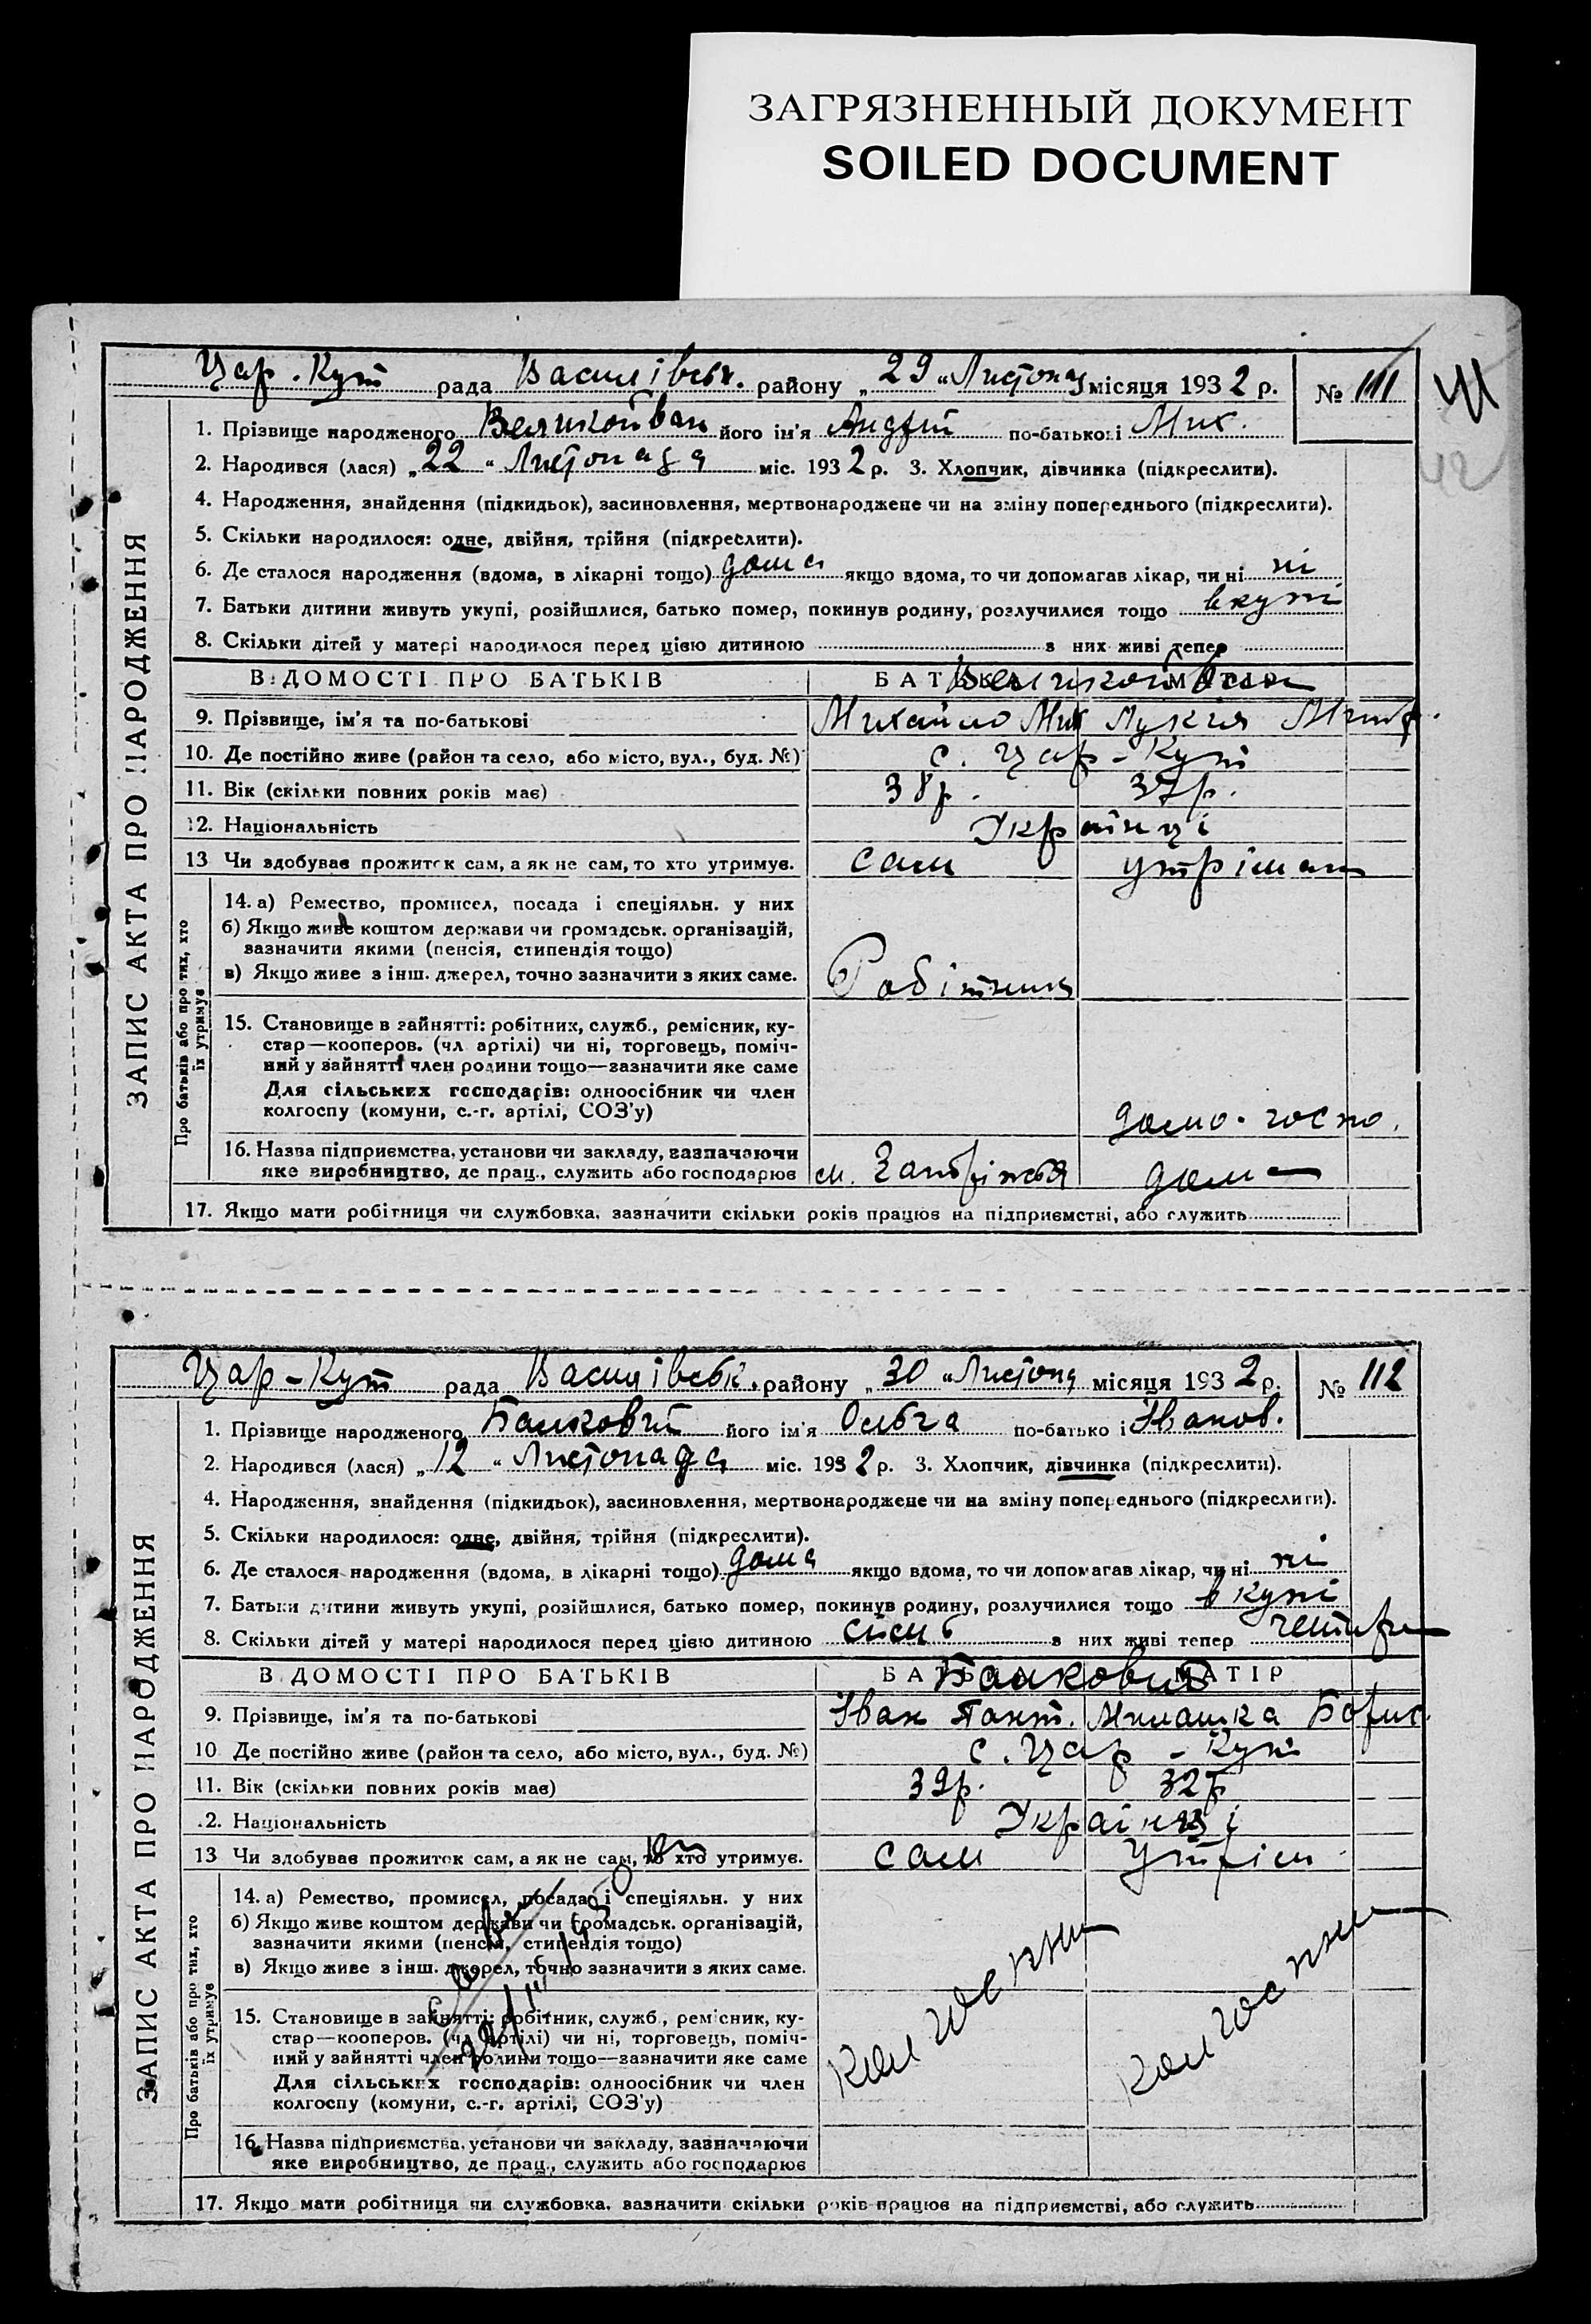 ЗАГРЯЗНЕННЫЙ ДОКУМЕНТ
SOILED DOCUMENT
41
42
ЗАПИС АКТА ПРО НАРОДЖЕННЯ
Цар. Кут рада Василівськ. району „29“ Листопад місяця 1932 р. № 111
1. Прізвище народженого Великоиван його ім'я Андрій по-батькові Мих.
2. Народився (лася) „22“ Листопада міс. 1932 р. 3. Хлопчик, дівчинка (підкреслити).
4. Народження, знайдення (підкидьок), засиновлення, мертвонароджене чи на зміну попереднього (підкреслити).
5. Скільки народилося: одне, двійня, трійня (підкреслити).
6. Де сталося народження (вдома, в лікарні тощо) дома якщо вдома, то чи допомагав лікар, чи ні ні
7. Батьки дитини живуть укупі, розійшлися, батько помер, покинув родину, розлучилися тощо вкупі
8. Скільки дітей у матері народилося перед цією дитиною з них живі тепер
ВІДОМОСТІ ПРО БАТЬКІВ БАТЬКО МАТІР
9. Прізвище, ім'я та по-батькові Михайло Мих Лукія Митр.
10. Де постійно живе (район та село, або місто, вул., буд. №) с. Цар-Кут
11. Вік (скільки повних років має) 38р. 37р.
12. Національність Українці
13 Чи здобуває прожиток сам, а як не сам, то хто утримує. сам утріман
Про батьків або про тих, хто їх утримує
14. а) Ремество, промисел, посада і спеціяльн. у них
б) Якщо живе коштом держави чи громадськ. організацій,
зазначити якими (пенсія, стипендія тощо)
в) Якщо живе з інш. джерел, точно зазначити з яких саме. Робітник
15. Становище в зайнятті: робітник, служб., ремісник, ку-
стар—кооперов. (чл артілі) чи ні, торговець, поміч-
ний у зайнятті член родини тощо—зазначити яке саме
Для сільських господарів: одноосібник чи член
колгоспу (комуни, с.-г. артілі, СОЗ'у) домо. госпо.
16. Назва підприємства, установи чи закладу, зазначаючи
яке виробництво, де прац., служить або господарює м. Запоріжжя дома
17. Якщо мати робітниця чи службовка, зазначити скільки років працює на підприємстві, або служить
ЗАПИС АКТА ПРО НАРОДЖЕННЯ
Цар-Кут рада Василівськ. району „30“ Листопад місяця 1932 р. № 112
1. Прізвище народженого його ім'я Ольга по-батькові Іванов.
2. Народився (лася) „12“ Листопада міс. 1932 р. 3. Хлопчик, дівчинка (підкреслити).
4. Народження, знайдення (підкидьок), засиновлення, мертвонароджене чи на зміну попереднього (підкреслити).
5. Скільки народилося: одне, двійня, трійня (підкреслити).
6. Де сталося народження (вдома, в лікарні тощо) дома якщо вдома, то чи допомагав лікар, чи ні ні
7. Батьки дитини живуть укупі, розійшлися, батько помер, покинув родину, розлучилися тощо в купі
8. Скільки дітей у матері народилося перед цією дитиною сім з них живі тепер
ВІДОМОСТІ ПРО БАТЬКІВ БАТЬКО МАТІР
9. Прізвище, ім'я та по-батькові Іван Пант. Милашка Борис.
10 Де постійно живе (район та село, або місто, вул., буд. №) с. Цар-Кут
11. Вік (скільки повних років має) 39р. 32р
12. Національність Українці
13 Чи здобуває прожиток сам, а як не сам, то хто утримує. сам Утрім.
Про батьків або про тих, хто їх утримує
14. а) Ремество, промисел, посада і спеціяльн. у них
б) Якщо живе коштом держави чи громадськ. організацій,
зазначити якими (пенсія, стипендія тощо)
в) Якщо живе з інш. джерел, точно зазначити з яких саме.
15. Становище в зайнятті: робітник, служб., ремісник, ку-
стар—кооперов. (чл артілі) чи ні, торговець, поміч-
ний у зайнятті член родини тощо—зазначити яке саме
Для сільських господарів: одноосібник чи член
колгоспу (комуни, с.-г. артілі, СОЗ'у)
16. Назва підприємства, установи чи закладу, зазначаючи
яке виробництво, де прац., служить або господарює
17. Якщо мати робітниця чи службовка, зазначити скільки років працює на підприємстві, або служить